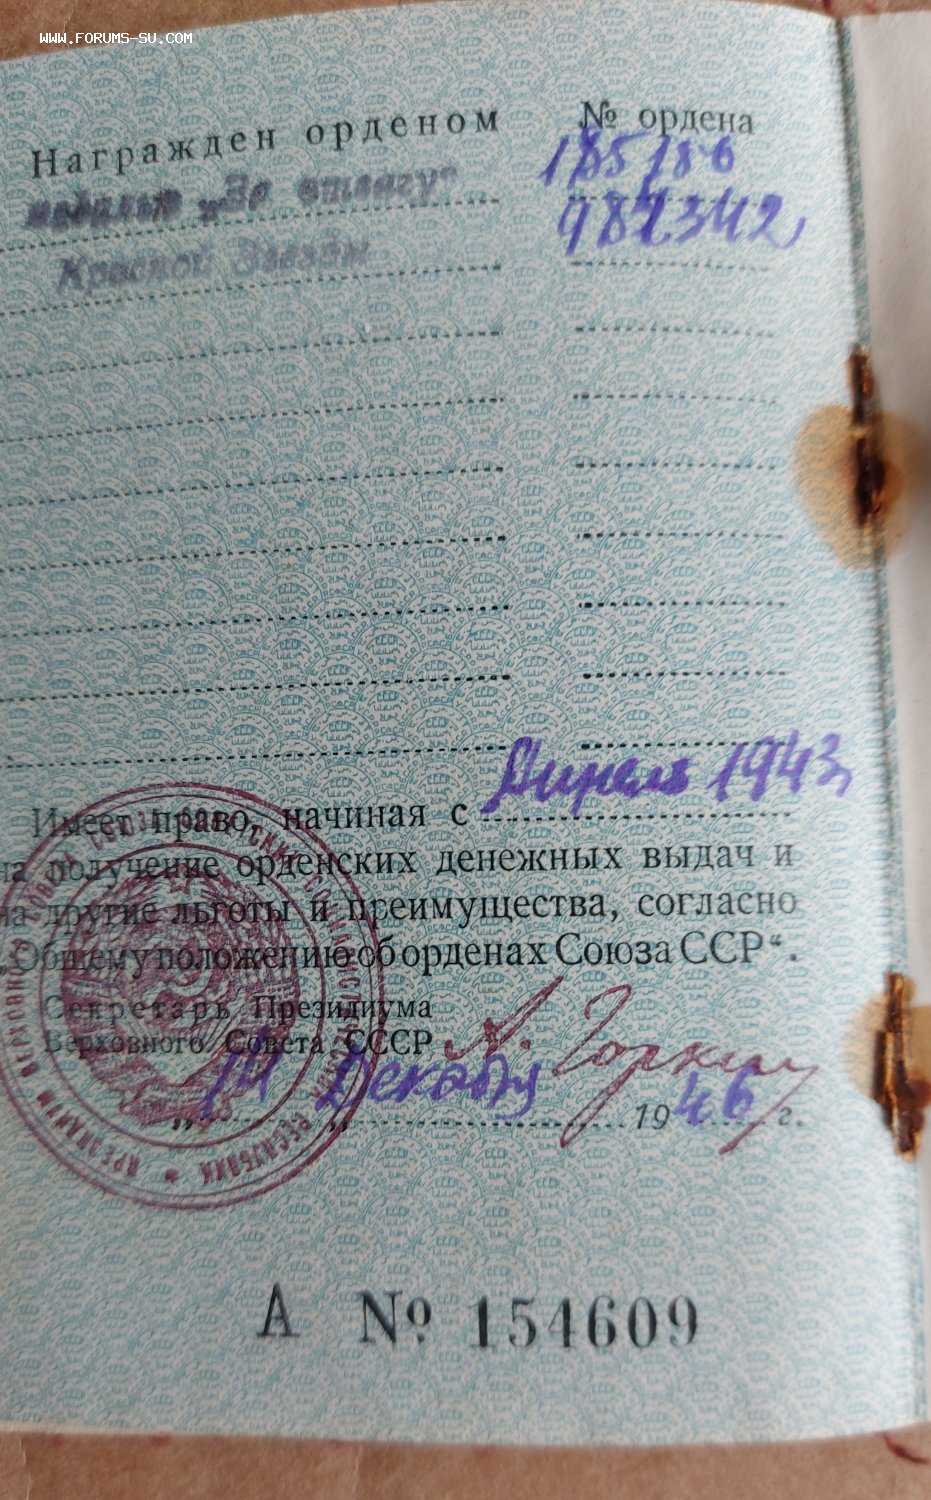 WWW.FORUMS-SU.COM
Награжден орденом № ордена
медалью „За отвагу" 185186
Красной Звезды 982342
Имеет право, начиная с Апреля 1943
на получение орденских денежных выдач и
на другие льготы и преимущества, согласно
„Общему положению об орденах Союза ССР“.
Секретарь Президиума
Верховного Совета СССР А. Горкин
Декабря 1946 г.
А № 154609